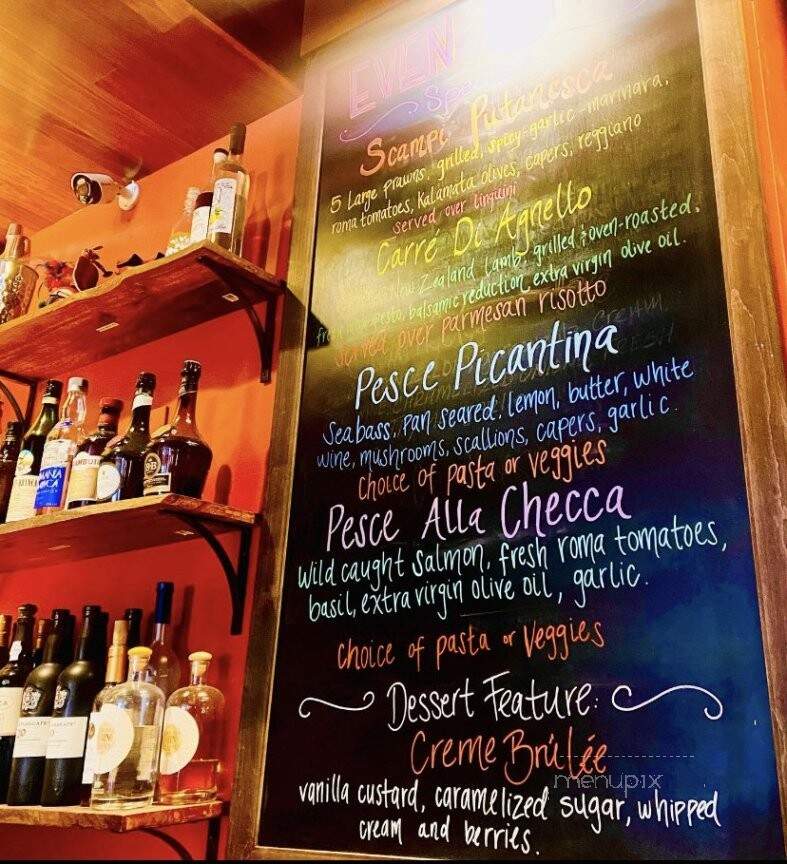 EVEN
Scampi Putanesca
5 Large prawns, grilled, spicy-garlic-marinara,
roma tomatoes, Kalamata olives, capers, reggiano
served over linguini
Carré Di Agnello
Zealand lamb, grilled & oven-roasted,
pesto, balsamic reduction, extra virgin olive oil.
served over parmesan risotto
Pesce Picantina
Seabass, pan seared, lemon, butter, white
wine, mushrooms, scallions, capers, garlic.
Choice of pasta or veggies
Pesce Alla Checca
Wild caught salmon, fresh roma tomatoes,
basil, extra virgin olive oil, garlic.
Choice of pasta or Veggies
Dessert Feature:
Creme Brûlée
menupix
vanilla custard, caramelized sugar, whipped
cream and berries.